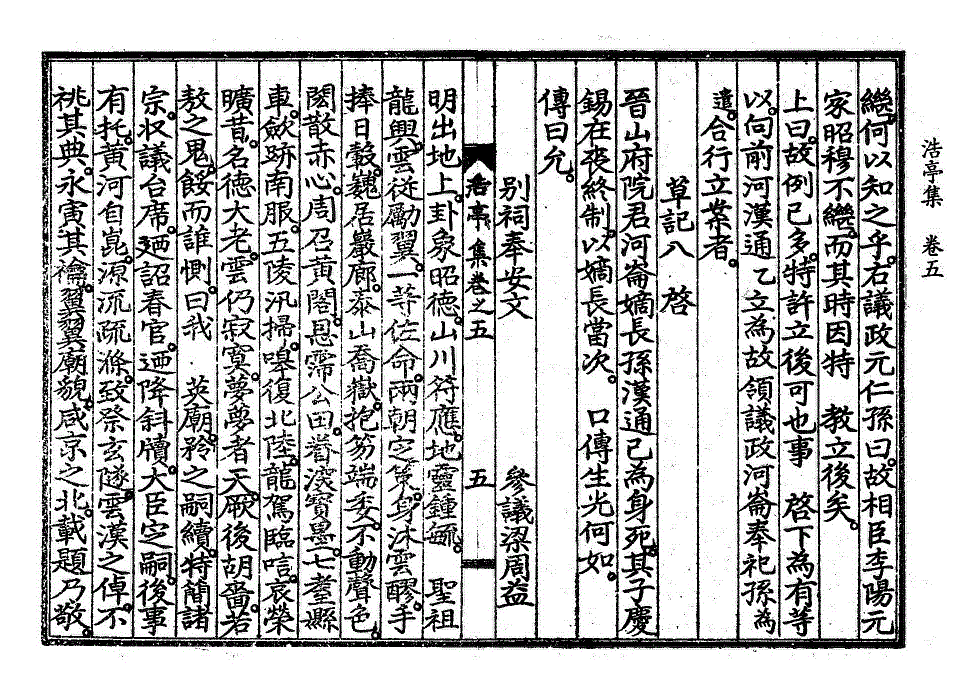 浩亭集 卷五
繼。何以知之乎。右議政元仁孫曰。故相臣李陽元
家昭穆不繼。而其時因特 教立後矣。
上曰。故例已多。特許立後可也事 啓下為有等
以。向前河漢通乙立為故領議政河崙奉祀孫為
遣。合行立案者。
草記入 啓
晉山府院君河崙嫡長孫漢通已為身死。其子慶
錫在喪終制。以嫡長當次。 口傳生光何如。
傳曰允。
別祠奉安文 參議梁周益
浩亭集卷之五 五
明出地上。卦象昭德。山川符應。地靈鍾毓。 聖祖
龍興。雲從勵翼。一等佐命。兩朝定策。身沐雲醪。手
捧日轂。巍居巖廊。泰山喬嶽。抱笏端委。不動聲色。
閎散赤心。周召黃閣。恩霈公田。眷深寶墨。七耋懸
車。歛跡南服。五陵汛掃。嘷復北陸。龍駕臨唁。哀榮
曠昔。名德大老。雲仍寂寞。夢夢者天。厥後胡嗇。若
敖之鬼。餒而誰惻。曰我 英廟。矜之嗣續。特簡諸
宗。収議台席。廼詔春官。廼降斜牘。大臣定嗣。後事
有托。黃河自崑。源流疏滌。致祭玄隧。雲漢之倬。不
祧其典。永寅其禴。翼翼廟貌。咸京之北。載題乃敬。